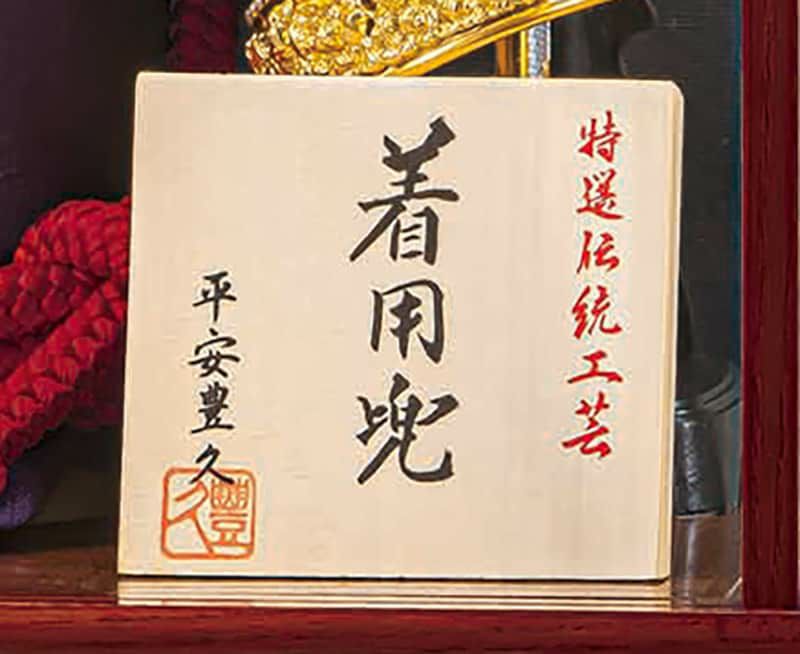 特選伝統工芸
着用兜
平安豊久
豊久